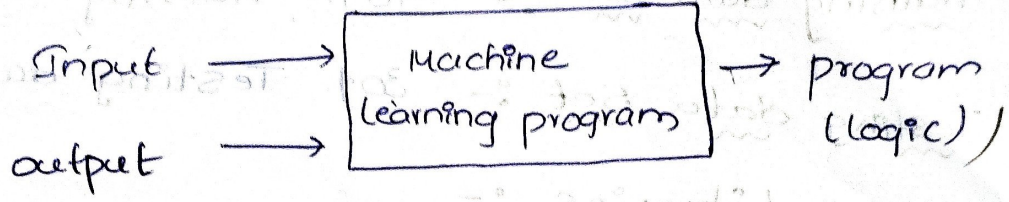 Input
Machine
learning program
program
(logic)
output